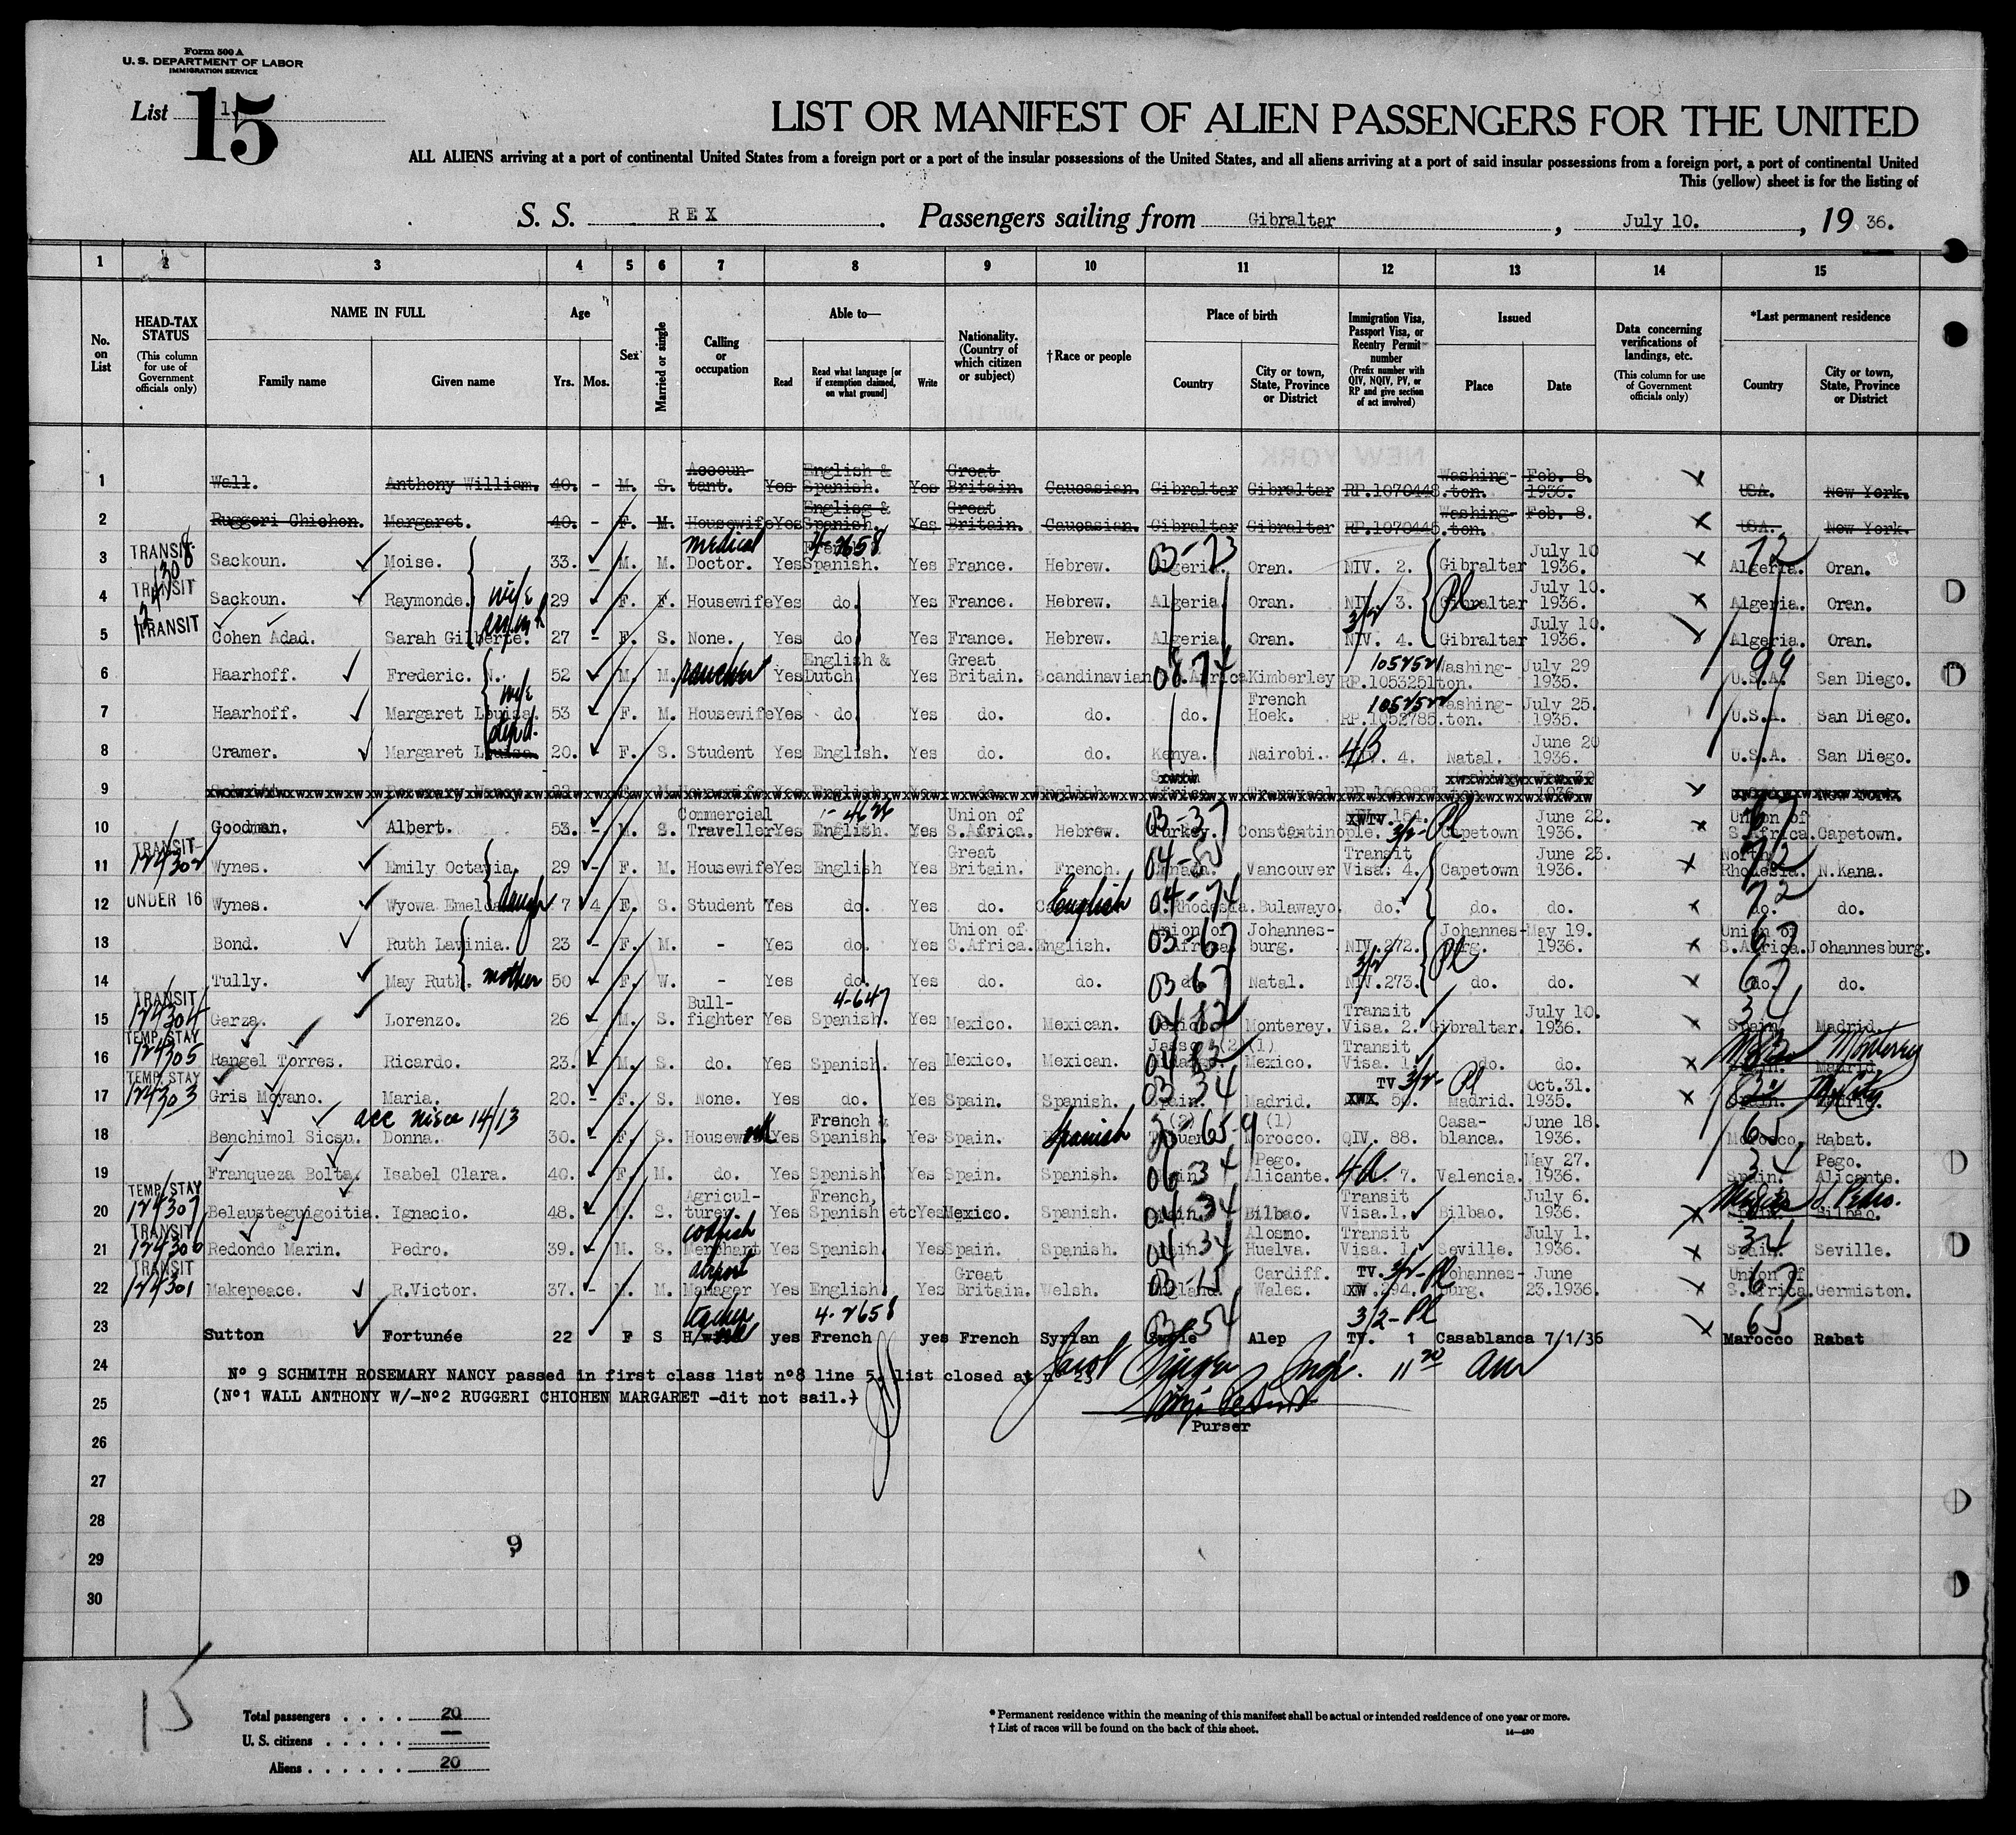 Form 500 A
U. S. DEPARTMENT OF LABOR
IMMIGRATION SERVICE
List 1
15
LIST OR MANIFEST OF ALIEN PASSENGERS FOR THE UNITED
ALL ALIENS arriving at a port of continental United States from a foreign port or a port of the insular possessions of the United States, and all aliens arriving at a port of said insular possessions from a foreign port, a port of continental United
This (yellow) sheet is for the listing of
S. S. REX. Passengers sailing from Gibraltar, July 10., 19 36.
1 2 3 4 5 6 7 8 9 10 11 12 13 14 15
No. on List
HEAD-TAX STATUS (This column for use of Government officials only)
NAME IN FULL Family name Given name
Age Yrs. Mos.
Sex
Married or single
Calling or occupation
Able to— Read Read what language [or if exemption claimed, on what ground] Write
Nationality. (Country of which citizen or subject)
†Race or people
Place of birth Country City or town, State, Province or District
Immigration Visa, Passport Visa, or Reentry Permit number (Prefix number with QIV, NQIV, PV, or RP and give section of act involved)
Issued Place Date
Data concerning verifications of landings, etc. (This column for use of Government officials only)
*Last permanent residence Country City or town, State, Province or District
NEW YORK
1 Wall. Anthony William. 40. - M. S. Accoun-tant. Yes English & Spanish. Yes Great Britain. Caucasian. Gibraltar Gibraltar RP.1070448 Washing-ton. Feb. 8. 1936. USA. New York.
2 Ruggeri Chichon. Margaret. 40. - F. M. Housewife Yes Englisg & Spanish. Yes Great Britain. Caucasian. Gibraltar Gibraltar RP.1070446 Washing-ton. Feb. 8. USA. New York.
3 TRANSIT Sackoun. Moise. 33. - M. M. medical Doctor. Yes Spanish. Yes France. Hebrew. 03-73 Algeria. Oran. NIV. 2. Gibraltar July 10 1936. 72 Algeria. Oran.
4 TRANSIT Sackoun. Raymonde. wife 29 F. F. Housewife Yes do. Yes France. Hebrew. Algeria. Oran. NIV. 3. 3/2 Pl Gibraltar July 10. 1936. Algeria. Oran.
5 TRANSIT Cohen Adad. Sarah Gilberte. 27 - F. S. None. Yes do. Yes France. Hebrew. Algeria. Oran. NIV. 4. Gibraltar July 10. 1936. Algeria. Oran.
6 Haarhoff. Frederic. N. 52 M. M. rancher Yes English & Dutch Yes Great Britain. Scandinavian 08 74 Africa Kimberley RP.1053251 Washing-ton. July 29 1935. 99 U.S.A. San Diego.
7 Haarhoff. Margaret Louisa. wife 53 F. M. Housewife Yes do. Yes do. do. do. French Hoek. RP.1052785 Washing-ton. July 25. 1935. U.S.A. San Diego.
8 Cramer. Margaret Louisa. 20. F. S. Student Yes English. Yes do. do. Kenya. Nairobi. 4B 4. Natal. June 20 1936. U.S.A. San Diego.
9
10 Goodman. Albert. 53. - M. S. Commercial Traveller Yes English. Yes Union of S.Africa. Hebrew. 03-37 Turkey. Constantinople. 154. 3/2-Pl Capetown June 22. 1936. 67 Union of S.Africa. Capetown.
11 TRANSIT 124302 Wynes. Emily Octavia. 29 - F. M. Housewife Yes English Yes Great Britain. French. Canada. Vancouver Transit Visa. 4. Capetown June 23. 1936. 72 North Rhodesia. N.Kana.
12 UNDER 16 Wynes. Wyowa daugh 7 4 F. S. Student Yes do. Yes do. English 04-74 Rhodesia. Bulawayo. do. do. do. 72 do. do.
13 Bond. Ruth Lavinia. 23 - F. M. - Yes do. Yes Union of S.Africa. English. 03-67 Union of Africa Johannes-burg. NIV.272. 3/2 Pl Johannes-burg. May 19. 1936. 67 Union of S.Africa. Johannesburg.
14 Tully. May Ruth. mother 50 - F. W. - Yes do. Yes do. do. 03 67 do. Natal. NIV.273. do. do. 67 do. do.
15 TRANSIT 124304 Garza. Lorenzo. 26 - M. S. Bull-fighter Yes 4-647 Spanish. Yes Mexico. Mexican. 04 82 Mexico. Monterey. Transit Visa. 2. Gibraltar. July 10. 1936. 34 Spain. Madrid.
16 TEMP. STAY 124305 Rangel Torres. Ricardo. 23. M. S. do. Yes Spanish. Yes Mexico. Mexican. 04 82 (2) (1) Mexico. Transit Visa. 1. do. do. Spain. Madrid. Monterrey
17 TEMP. STAY 124303 Gris Moyano. Maria. 20. - F. S. None. Yes do. Yes Spain. Spanish. 03 34 Spain. Madrid. TV 50. 3/2- Pl Madrid. Oct.31. 1935. Spain. Madrid.
acc niece 14/13
18 Benchimol Sicsu. Donna. 30. - F. S. Yes French & Spanish. Yes Spain. Spanish 65-9 (2) (1) Morocco. QIV. 88. Casa-blanca. June 18. 1936. 65 Morocco. Rabat.
19 Franqueza Bolta. Isabel Clara. 40. F. M. do. Yes Spanish Yes Spain. Spanish. 06 34 Spain Pego. Alicante. 7. Valencia. May 27. 1936. 34 Spain. Pego. Alicante.
20 TEMP. STAY 124307 Belausteguigoitia. Ignacio. 48. M. S. Agricul-turer. Yes French, Spanish etc Yes Mexico. Spanish. 04 34 Spain. Bilbao. Transit Visa.1. Bilbao. July 6. 1936. Spain. Bilbao. S. Pedro.
21 TRANSIT 124306 Redondo Marin. Pedro. 39. M. S. codfish Merchant Yes Spanish. Yes Spain. Spanish. 04-34 Spain. Alosmo. Huelva. Transit Visa. 1 Seville. July 1. 1936. 34 Spain. Seville.
22 TRANSIT 124301 Makepeace. R.Victor. 37. - M. M. airport Manager Yes English. Yes Great Britain. Welsh. England. Cardiff. Wales. TV. 294. 3/2-Pl Johannes-burg. June 23.1936. 67 Union of S.Africa. Germiston.
23 Sutton Fortunée 22 F S teacher yes 4-2658 French yes French Syrian 03 54 Syrie Alep TV. 1 3/2-Pl Casablanca 7/1/36 65 Marocco Rabat
24 Nº 9 SCHMITH ROSEMARY NANCY passed in first class list nº8 line 5. list closed at nº 23
25 (Nº1 WALL ANTHONY W/-Nº2 RUGGERI CHICHEN MARGARET -dit not sail.)
Purser
26
27
28
29
9
30
15
Total passengers . . . . 20
U. S. citizens . . . . . —
Aliens . . . . . . 20
* Permanent residence within the meaning of this manifest shall be actual or intended residence of one year or more.
† List of races will be found on the back of this sheet.
14—430